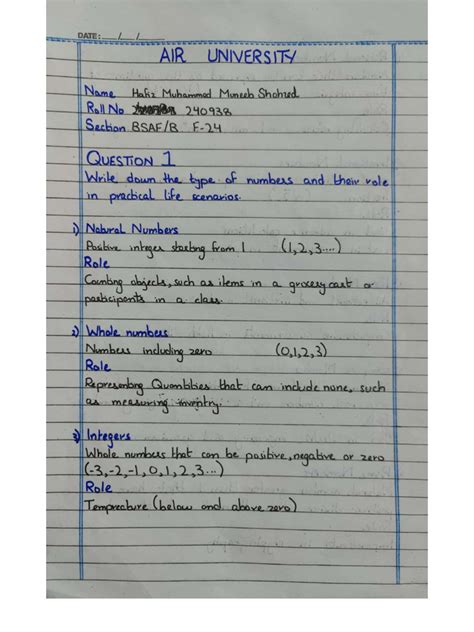 DATE: __/__/__
AIR UNIVERSITY
Name Hafiz Muhammad Muneeb Shahzad
Roll No 240938
Section BSAF/B F-24
QUESTION 1
Write down the type of numbers and their role
in practical life scenarios.
1) Natural Numbers
Positive integer starting from 1 (1,2,3....)
Role
Counting objects, such as items in a grocery cart or
participants in a class.
2) Whole numbers
Numbers including zero (0,1,2,3)
Role
Representing Quantities that can include none, such
as measuring inventry.
3) Integers
Whole numbers that can be positive, negative or zero
(-3,-2,-1,0,1,2,3...)
Role
Temprature (below and above zero)